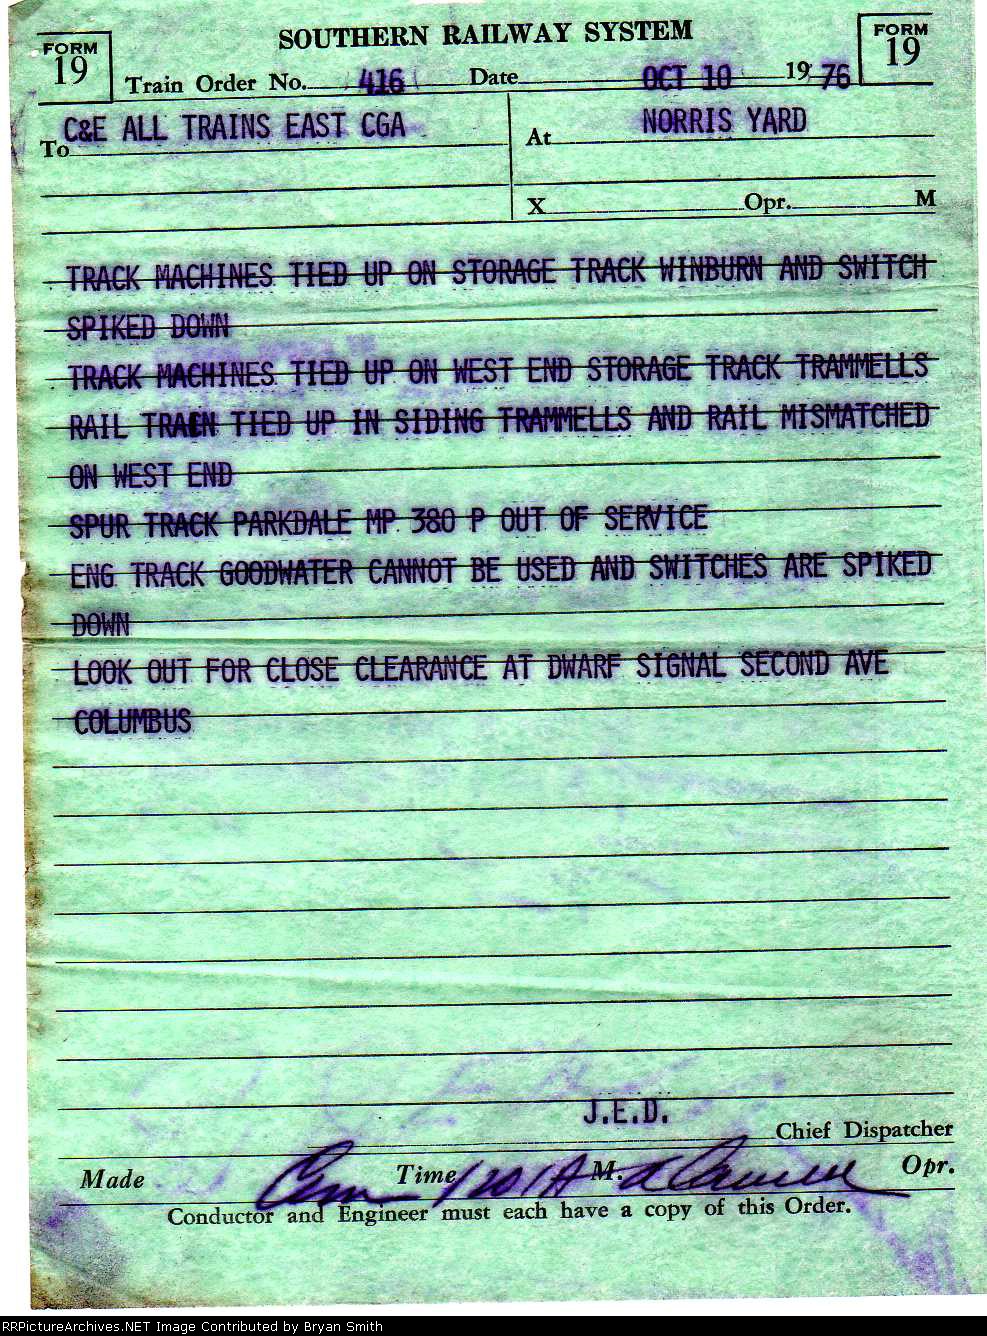 SOUTHERN RAILWAY SYSTEM
FORM 19
FORM 19
Train Order No. 416 Date OCT 10 1976
To C&E ALL TRAINS EAST CGA At NORRIS YARD
X Opr. M
TRACK MACHINES TIED UP ON STORAGE TRACK WINBURN AND SWITCH
SPIKED DOWN
TRACK MACHINES TIED UP ON WEST END STORAGE TRACK TRAMMELLS
RAIL TRAIN TIED UP IN SIDING TRAMMELLS AND RAIL MISMATCHED
ON WEST END
SPUR TRACK PARKDALE MP 380 P OUT OF SERVICE
ENG TRACK GOODWATER CANNOT BE USED AND SWITCHES ARE SPIKED
DOWN
LOOK OUT FOR CLOSE CLEARANCE AT DWARF SIGNAL SECOND AVE
COLUMBUS
J.E.D.
Chief Dispatcher
Made Com Time 1201A M. Opr.
Conductor and Engineer must each have a copy of this Order.
RRPictureArchives.NET Image Contributed by Bryan Smith